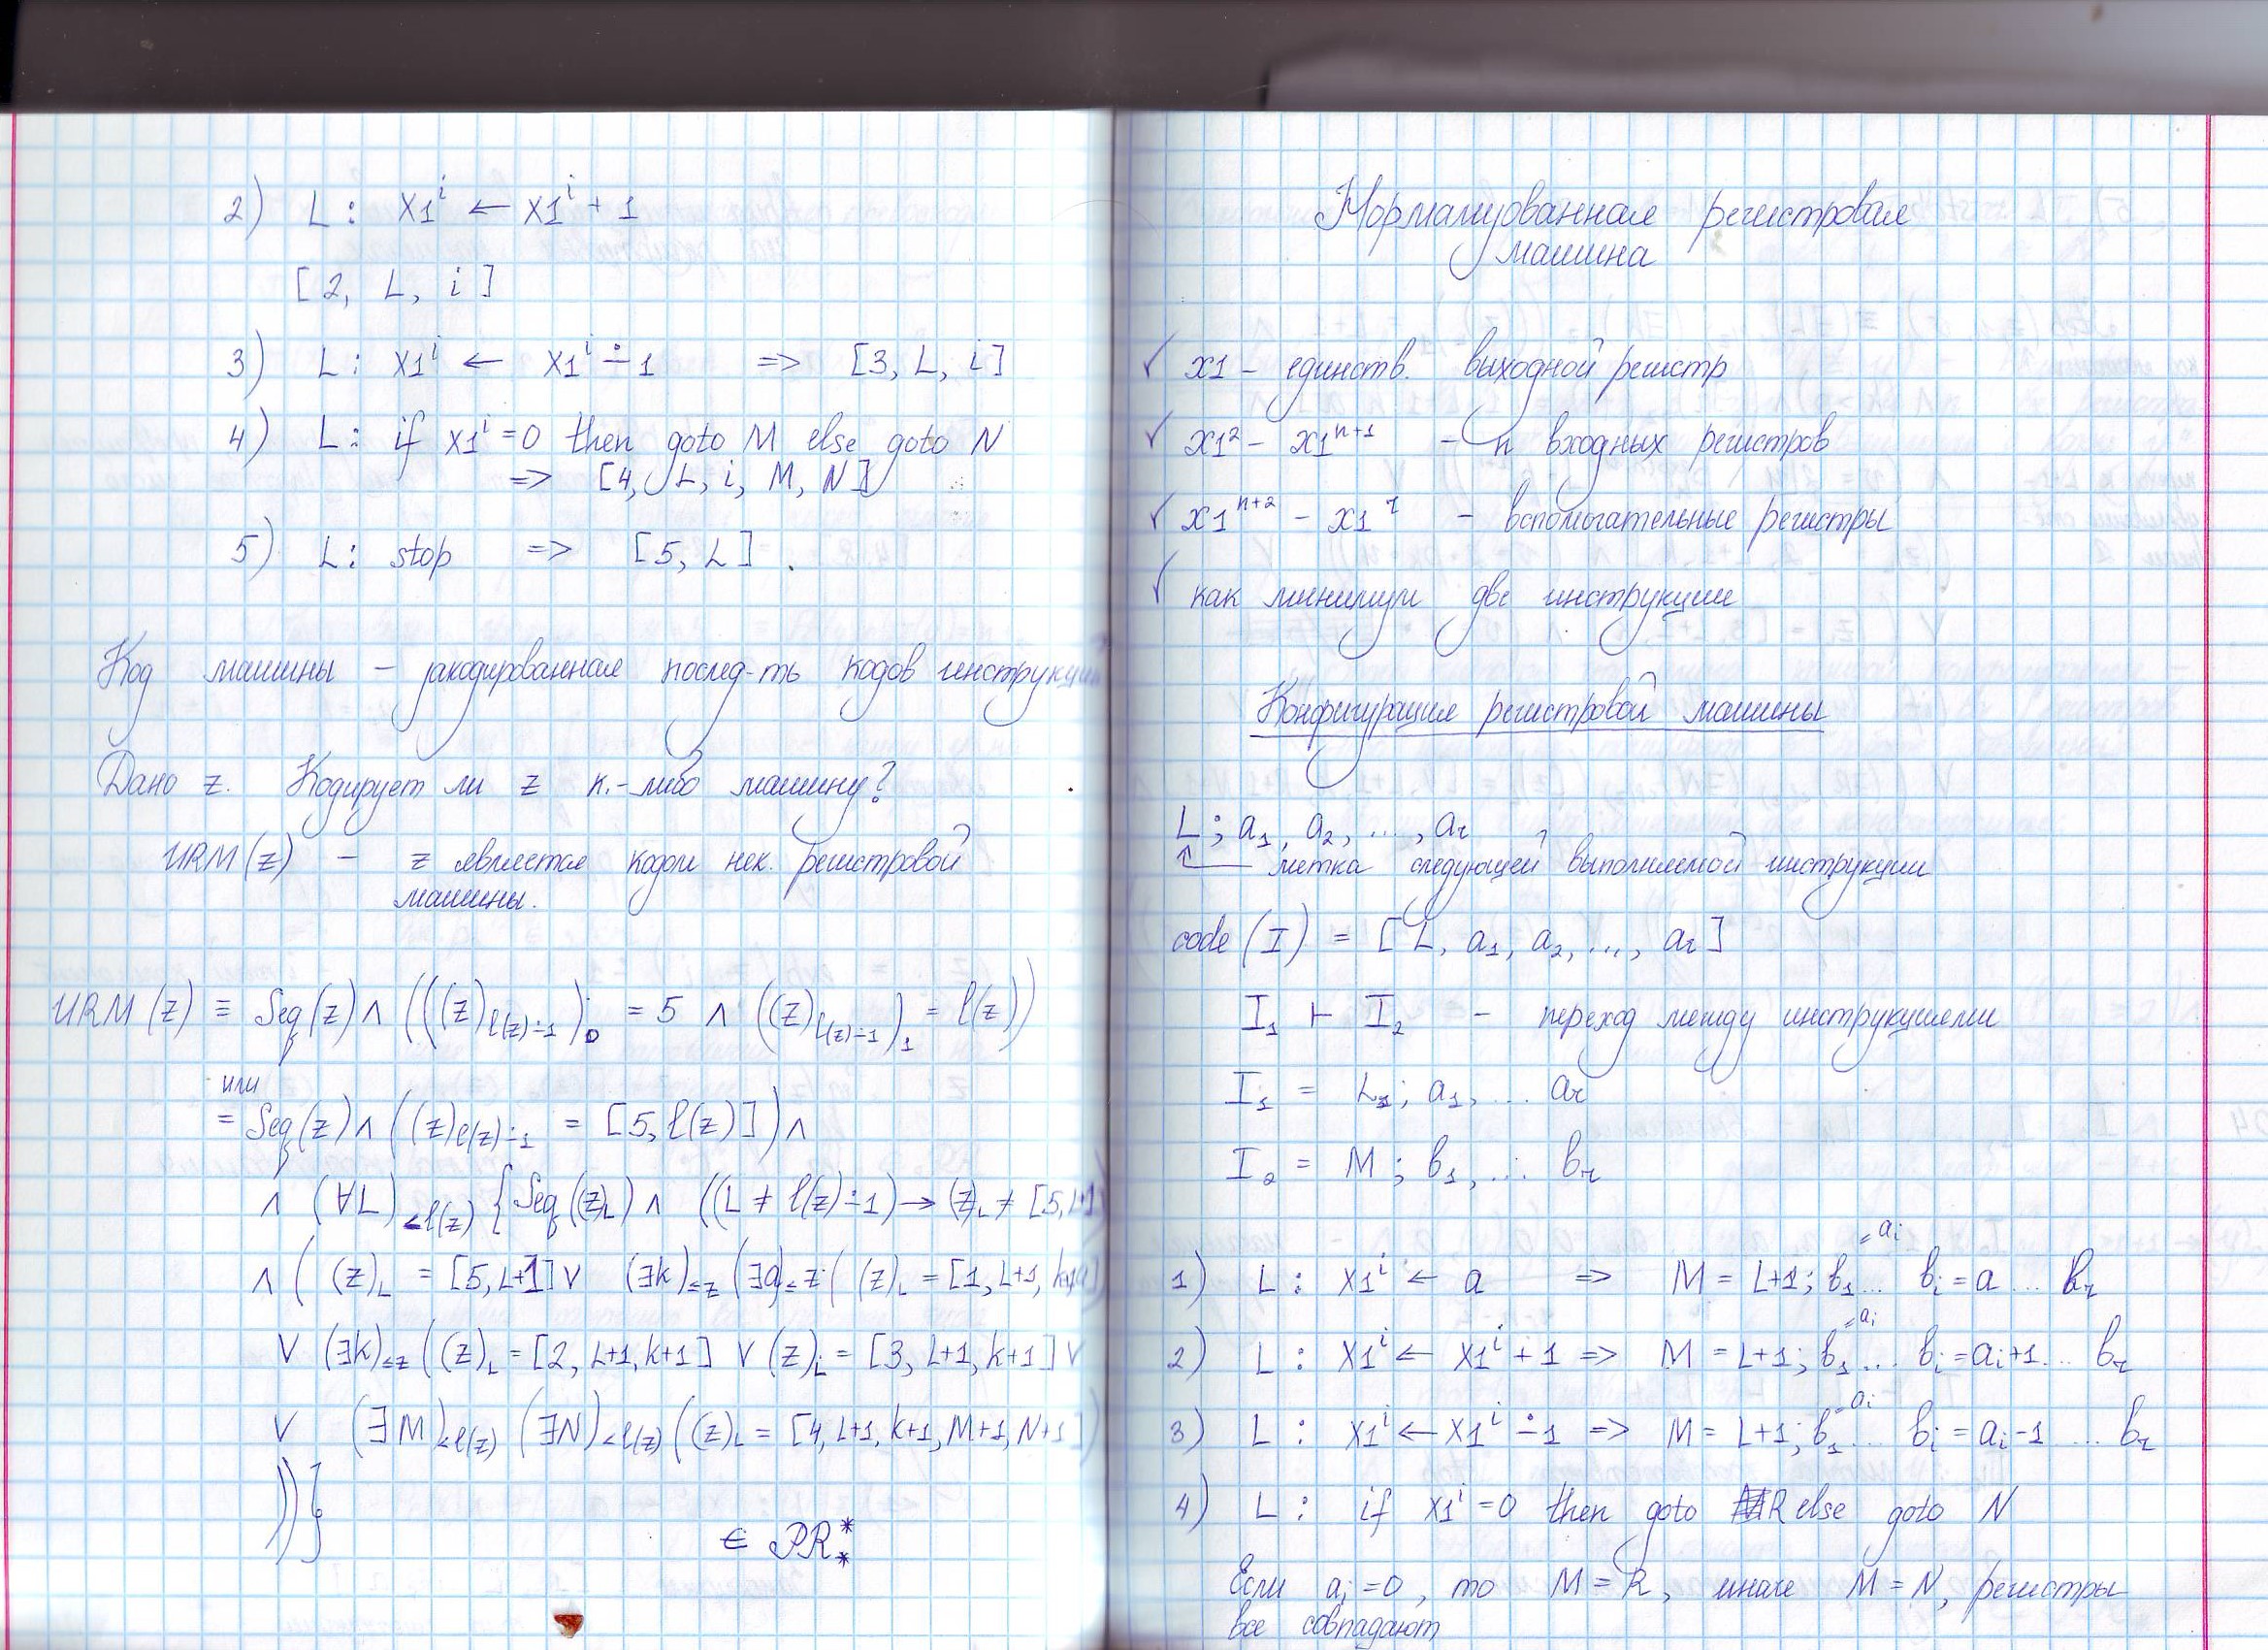 2) L: X1^i ← X1^i + 1
[2, L, i]
3) L: X1^i ← X1^i ∸ 1 => [3, L, i]
4) L: if X1^i = 0 then goto M else goto N
=> [4, L, i, M, N]
5) L: stop => [5, L].
Код машины – закодированная послед-ть кодов инструкции
Дано z. Кодирует ли z к.-либо машину?
URM(z) – z является кодом нек. регистровой
машины.
URM(z) ≡ Seq(z) ∧ (((z)_{l(z)∸1})_0 = 5 ∧ ((z)_{l(z)∸1})_1 = l(z))
или
= Seq(z) ∧ ((z)_{l(z)∸1} = [5, l(z)]) ∧
∧ (∀L)_{<l(z)} {Seq((z)_L) ∧ ((L ≠ l(z)∸1) → (z)_L ≠ [5, L+1]
∧ ( (z)_L = [5, L+1] ∨ (∃k)_{≤z} (∃a)_{≤z} ( (z)_L = [1, L+1, k+1, a]
∨ (∃k)_{≤z} ((z)_L = [2, L+1, k+1] ∨ (z)_L = [3, L+1, k+1] ∨
∨ (∃M)_{<l(z)} (∃N)_{<l(z)} ((z)_L = [4, L+1, k+1, M+1, N+1])
))}
∈ PR_*^*
Нормализованная регистровая
машина
✓ x1 – единств. выходной регистр
✓ x1^2 – x1^{n+1} – n входных регистров
✓ x1^{n+2} – x1^r – вспомогательные регистры
✓ как минимум две инструкции
Конфигурация регистровой машины
L; a_1, a_2, ..., a_r
метка следующей выполняемой инструкции
code(I) = [L, a_1, a_2, ..., a_r]
I_1 ⊢ I_2 – переход между инструкциями
I_1 = L; a_1, ... a_r
I_2 = M; b_1, ... b_r
1) L: X1^i ← a => M = L+1; b_1 = a_i ... b_i = a ... b_r
2) L: X1^i ← X1^i + 1 => M = L+1; b_1 = a_i ... b_i = a_i+1 ... b_r
3) L: X1^i ← X1^i ∸ 1 => M = L+1; b_1 = a_i ... b_i = a_i-1 ... b_r
4) L: if X1^i = 0 then goto R else goto N
Если a_i = 0, то M = R, иначе M = N, регистры
все совпадают